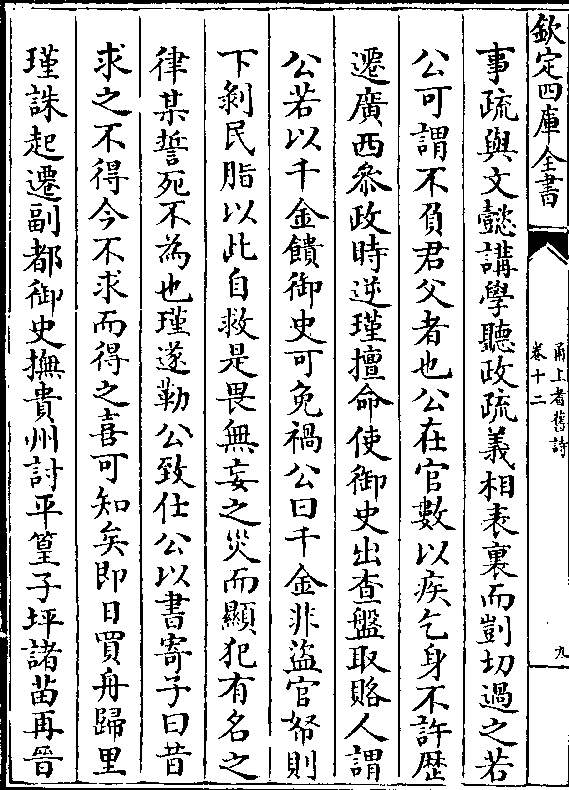 欽定四庫全書
甬上耆舊詩
卷十二
九
事疏與文懿講學聽政疏義相表裏而剴切過之若
公可謂不負君父者也公在官數以疾乞身不許歷
遷廣西叅政時逆瑾擅命使御史出查盤取賂人謂
公若以千金饋御史可免禍公曰千金非盜官帑則
下剝民脂以此自救是畏無妄之災而顯犯有名之
律某誓死不為也瑾遂勒公致仕公以書寄子曰昔
求之不得今不求而得之喜可知矣即日買舟歸里
瑾誅起遷副都御史撫貴州討平篁子坪諸苗再晉